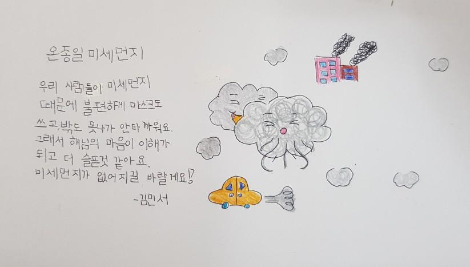 온종일 미세먼지
우리 사람들이 미세먼지
때문에 불편하게 마스크도
쓰고, 밖도 못나가 안타까워요.
그래서 해님의 마음이 이해가
되고 더 슬픈것 같아요.
미세먼지가 없어지길 바랄게요!
-김민서